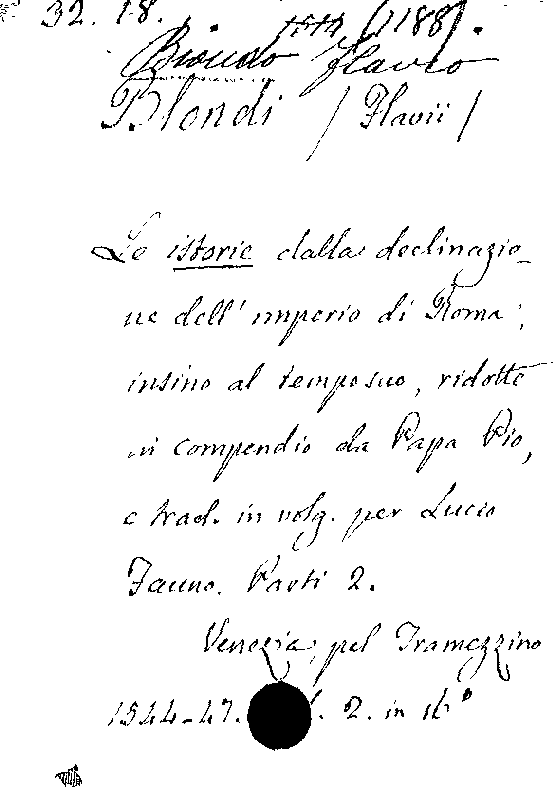 32. 18.
(1188).
Biondo Flavio
Blondi / Flavii /
Le istorie dalla declinazio_
ne dell' imperio di Roma,
insino al tempo suo, ridotte
in compendio da Papa Pio,
e trad. in volg. per Lucio
Fauno. Parti 2.
Venezia, pel Tramezzino
1544-47. 2. in